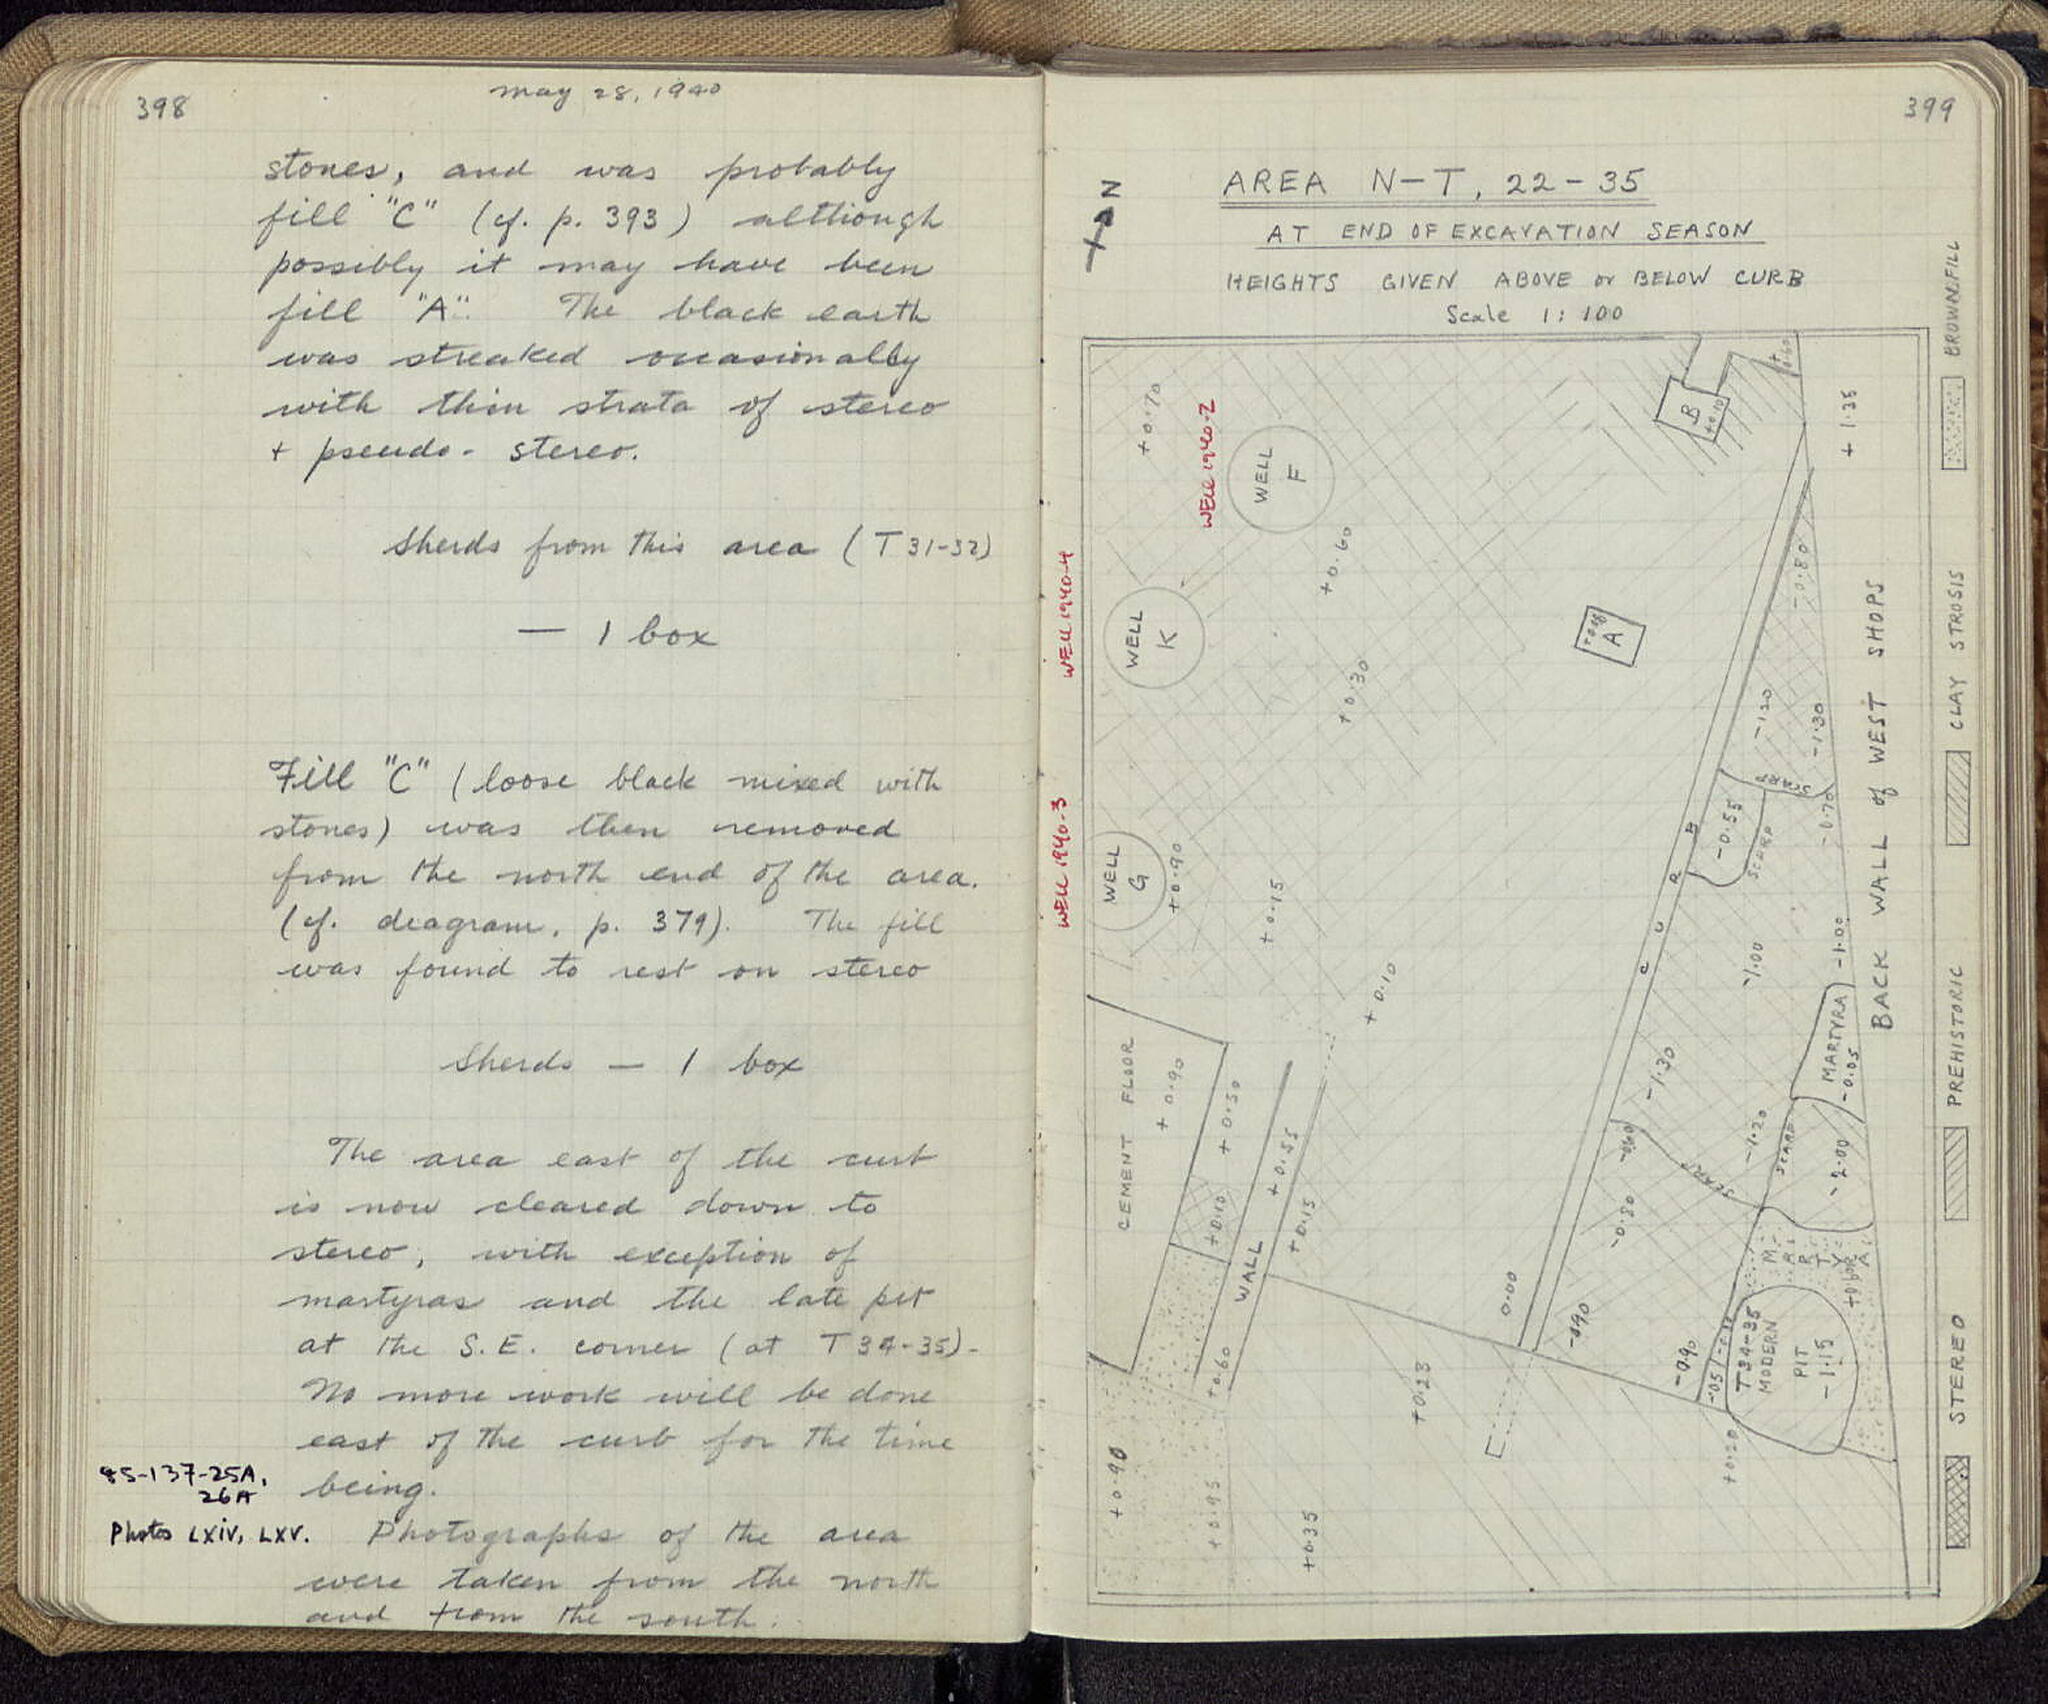 398
May 28, 1940
stones, and was probably
fill "C" (cf. p. 393) although
possibly it may have been
fill "A". The black earth
was streaked occasionally
with thin strata of stereo
+ pseudo-stereo.
Sherds from this area (T 31-32)
— 1 box
Fill "C" (loose black mixed with
stones) was then removed
from the north end of the area.
(cf. diagram, p. 379). The fill
was found to rest on stereo
Sherds — 1 box
The area east of the curb
is now cleared down to
stereo, with exception of
martyras and the late pit
at the S.E. corner (at T 34-35)-
No more work will be done
east of the curb for the time
being.
85-137-25A,
26A
Photos LXIV, LXV.
Photographs of the area
were taken from the north
and from the south.
399
N
AREA N-T, 22-35
AT END OF EXCAVATION SEASON
HEIGHTS GIVEN ABOVE or BELOW CURB
Scale 1:100
+0.70
WELL 1940-2
WELL F
B
+0.10
+1.35
WELL 1940-4
WELL K
+0.60
+0.30
A
-0.80
-1.20
-1.30
SCARP
-0.70
WELL 1940-3
WELL G
+0.90
+0.15
-0.55
SCARP
CURB
+0.10
-1.00
-1.00
BACK WALL of WEST SHOPS
CEMENT FLOOR
+0.90
+0.30
+0.55
+0.10
WALL
+0.15
-1.30
MARTYRA
-0.05
-0.60
-1.20
SCARP
SCARP
-2.00
-0.80
MARTYRA
0.00
-0.90
-0.90
T 34-35
MODERN
PIT
-1.15
+0.60
+0.23
+0.20
+0.90
+0.95
+0.35
BROWN FILL
CLAY STROSIS
PREHISTORIC
STEREO